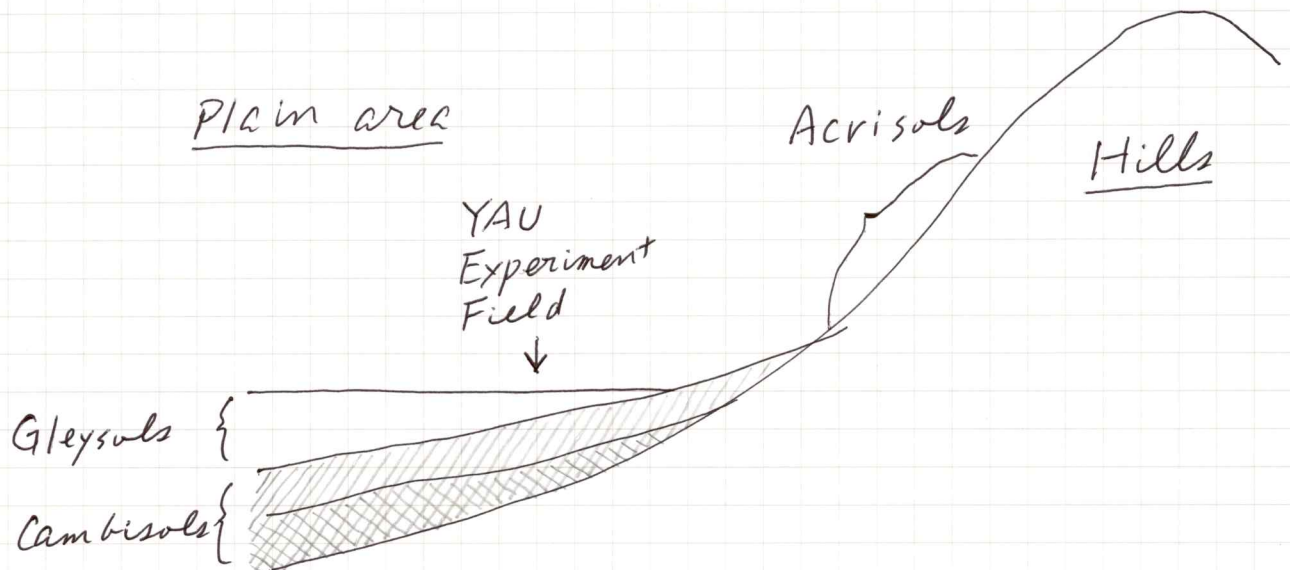 Plain area
Acrisols
Hills
YAU
Experiment
Field
Gleysols
Cambisols